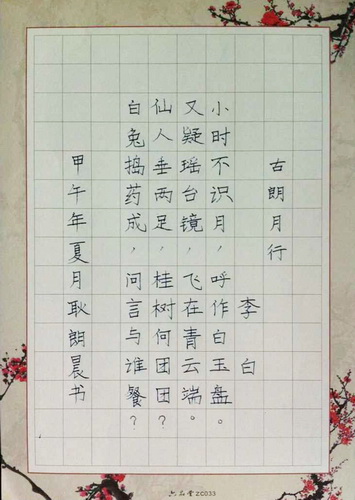 古朗月行
李白
小时不识月，呼作白玉盘。
又疑瑶台镜，飞在青云端。
仙人垂两足，桂树何团团？
白兔捣药成，问言与谁餐？
甲午年夏月耿朗晨书
六品堂ZC033